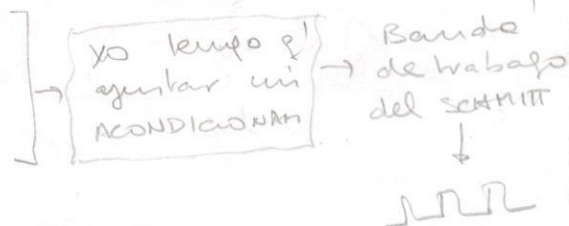 yo tengo q'
ajustar mi
ACONDICIONAM
Banda
de trabajo
del SCHMITT